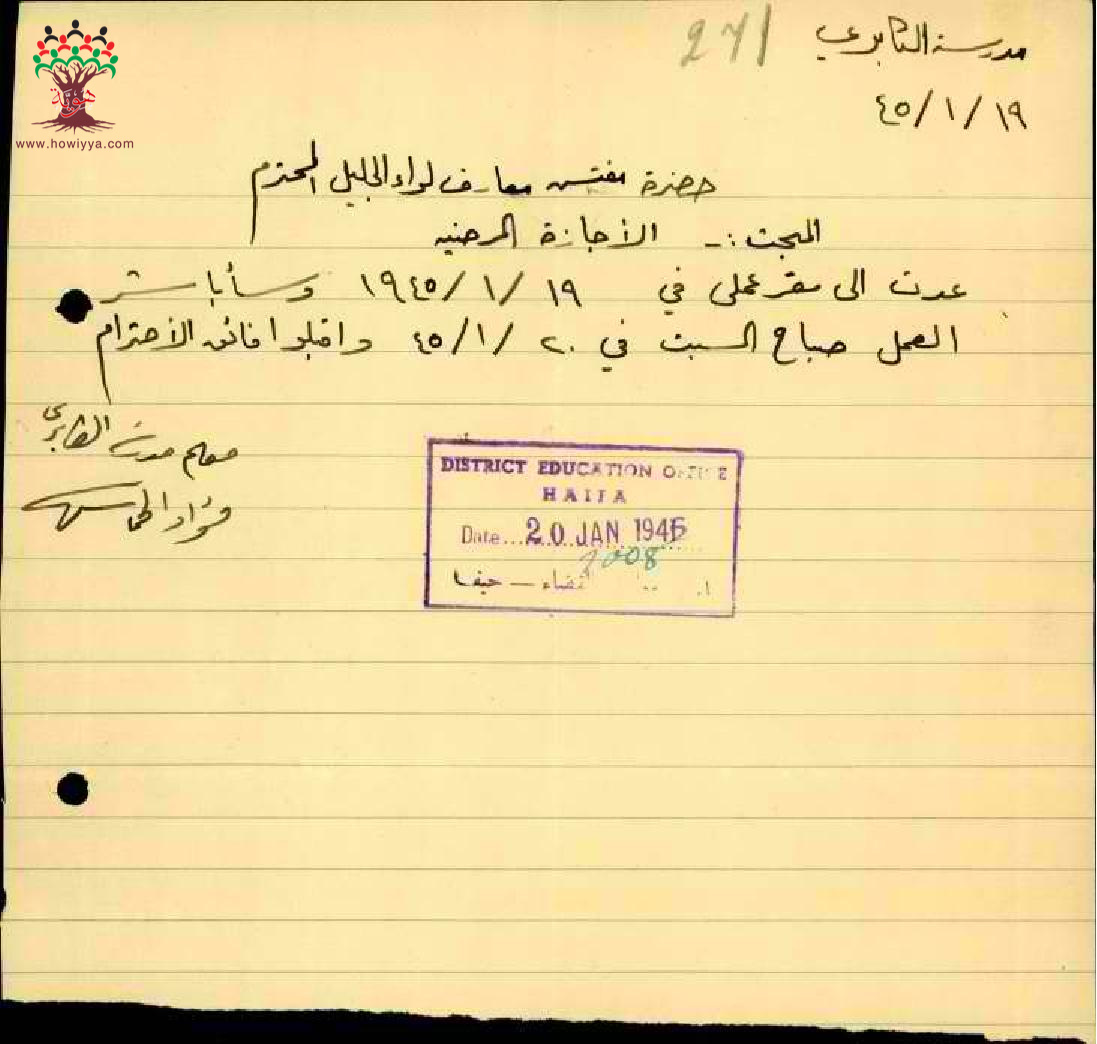 هوية
www.howiyya.com
271
مدرسة الكابري
٤٥/١/١٩
حضرة مفتش معارف لواء الجليل المحترم
المبحث :- الأجازة المرضيه
عدت الى مقر عملي في ١٩٤٥/١/١٩ وسأباشر
العمل صباح السبت في ٤٥/١/٢٠ واقبلوا فائق الأحترام
معلم مدرسة الكابري
فؤاد
DISTRICT EDUCATION OFFICE
HAIFA
Date... 20 JAN 1945
2008
قضاء - حيفا